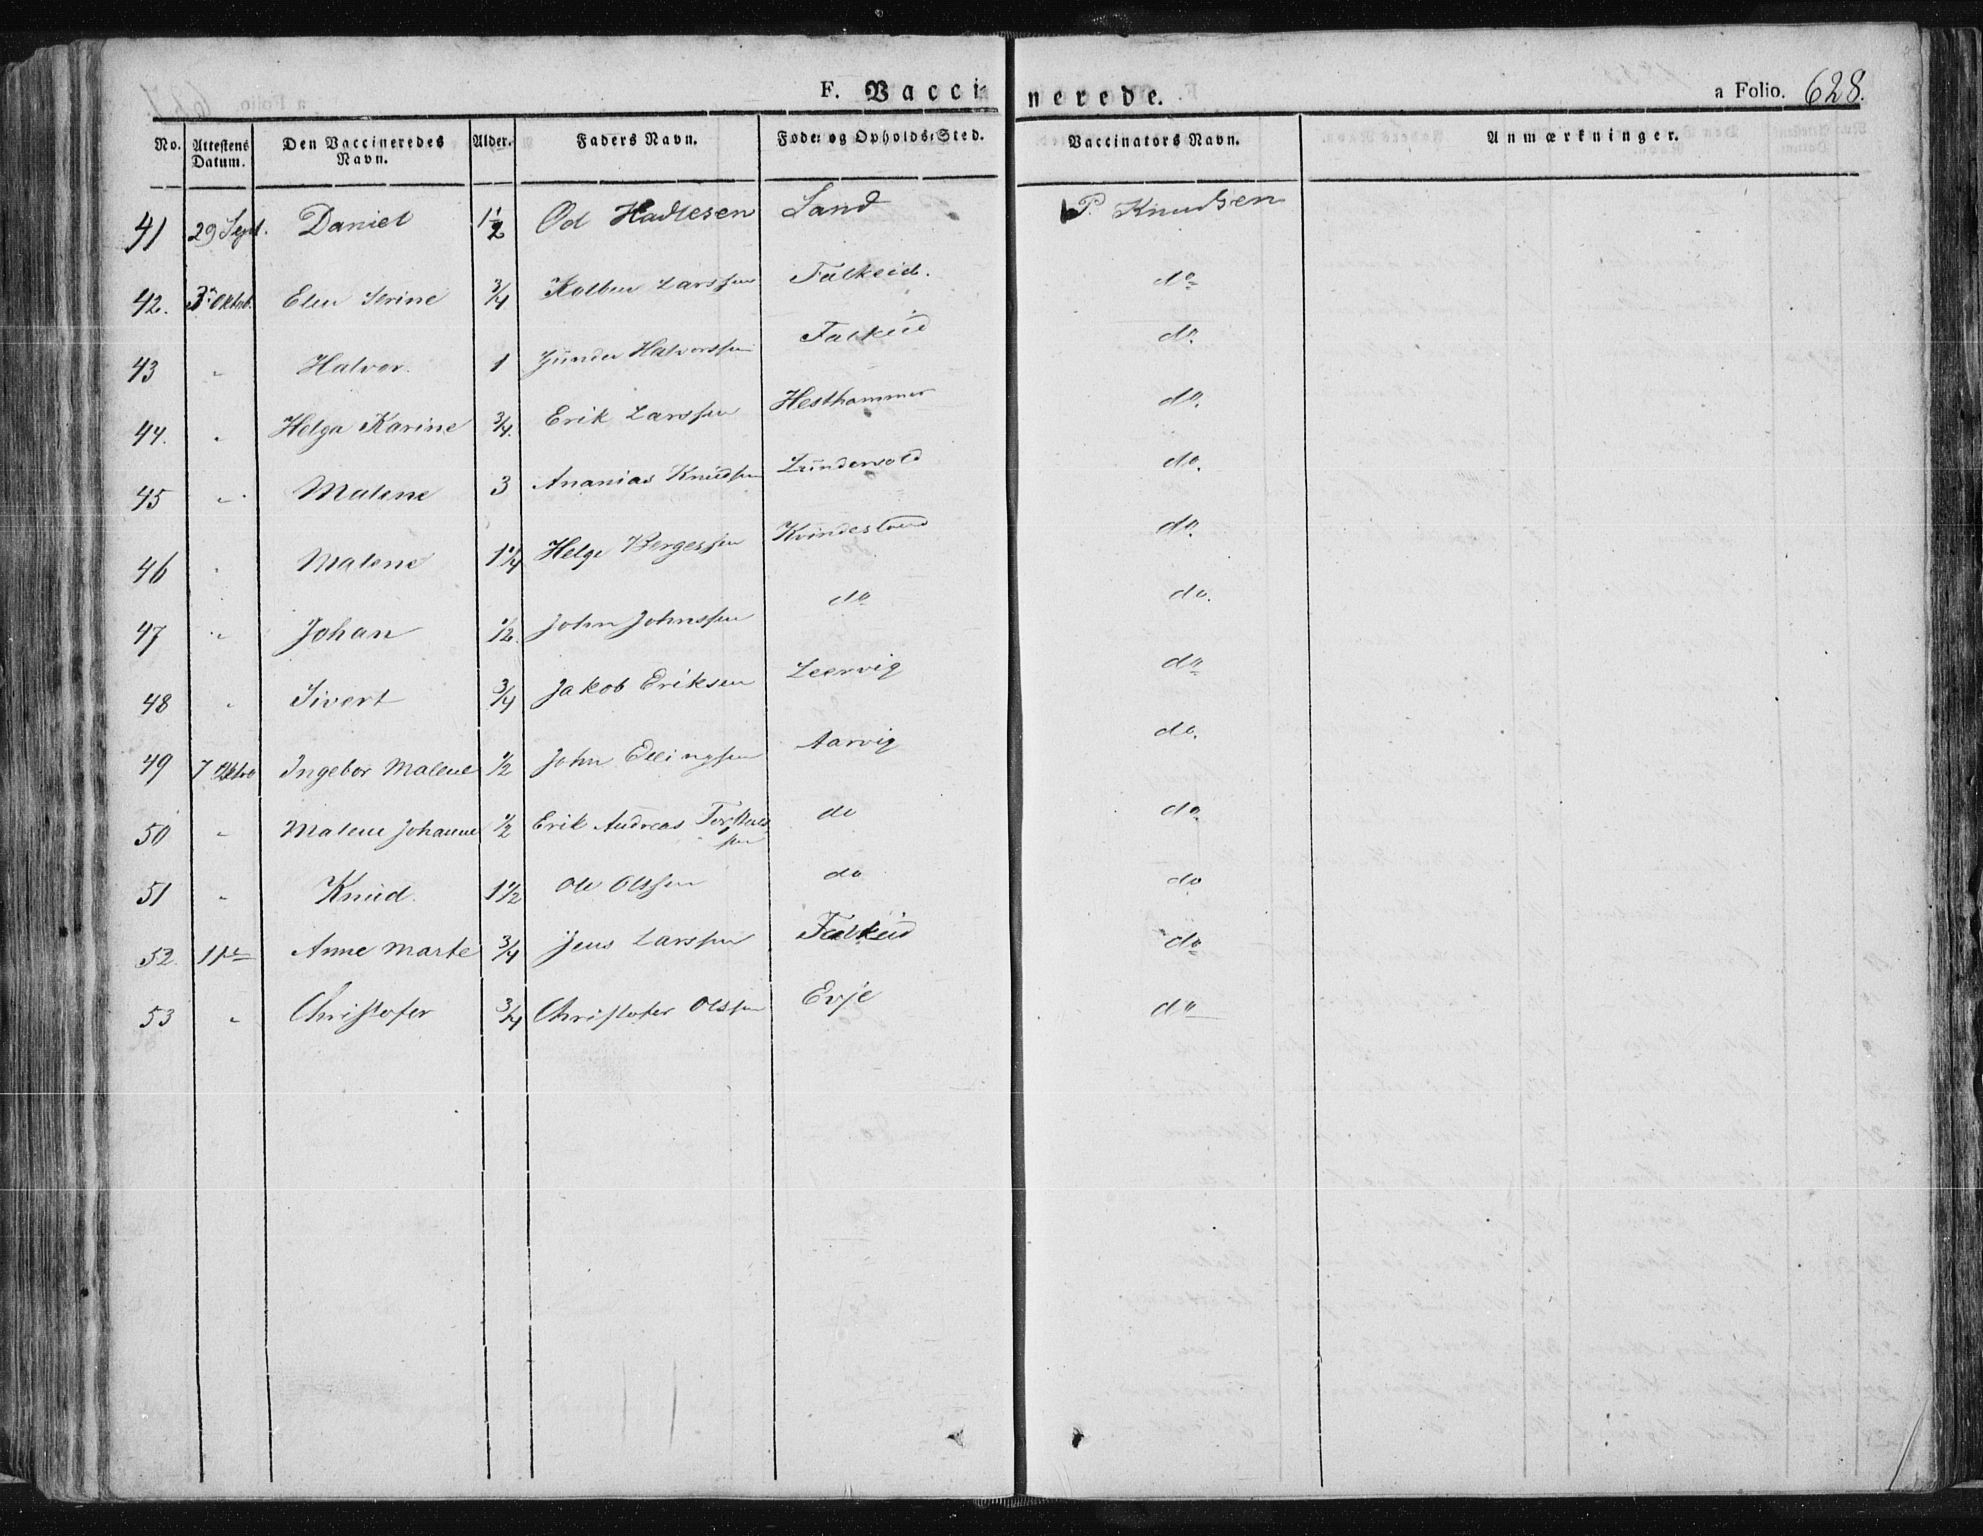 F. Vaccinerede. a Folio. 628.
No. Attestens Datum. Den Vaccineredes Navn. Alder. Faders Navn. Føde- og Opholds-Sted. Vaccinators Navn. Anmærkninger.
41 29 Sept. Daniel 1 1/2 Od Sand P. Knudsen
42. 3 Oktob. Elen Serine 3/4 Kolben Larssen Falkeid. do
43 " Halvor. 1 Gunder Halvorssen Falkeid do.
44. " Helga Karine 3/4. Erik Larssen Hesthammer do.
45 " Malene 3 Ananias Knudsen Lundervold do.
46 " Malene 1 1/4 Helge Børgessen Kvindesland do.
47 " Johan 1/2. John Johnssen do do.
48 " Sivert 3/4 Jakob Eriksen Leervig do
49 7 Oktbo Ingebor Malene 1/2 John Ellingsen Aarvig do.
50 " Malene Johanne 1/2 Erik Andreas do do.
51 " Knud. 1 1/2 Ole Olssen do do
52. 11te Anne Marte 3/4 Jens Larssen Falkeid do
53 " Christofer 3/4 Christofer Olssen Evje do